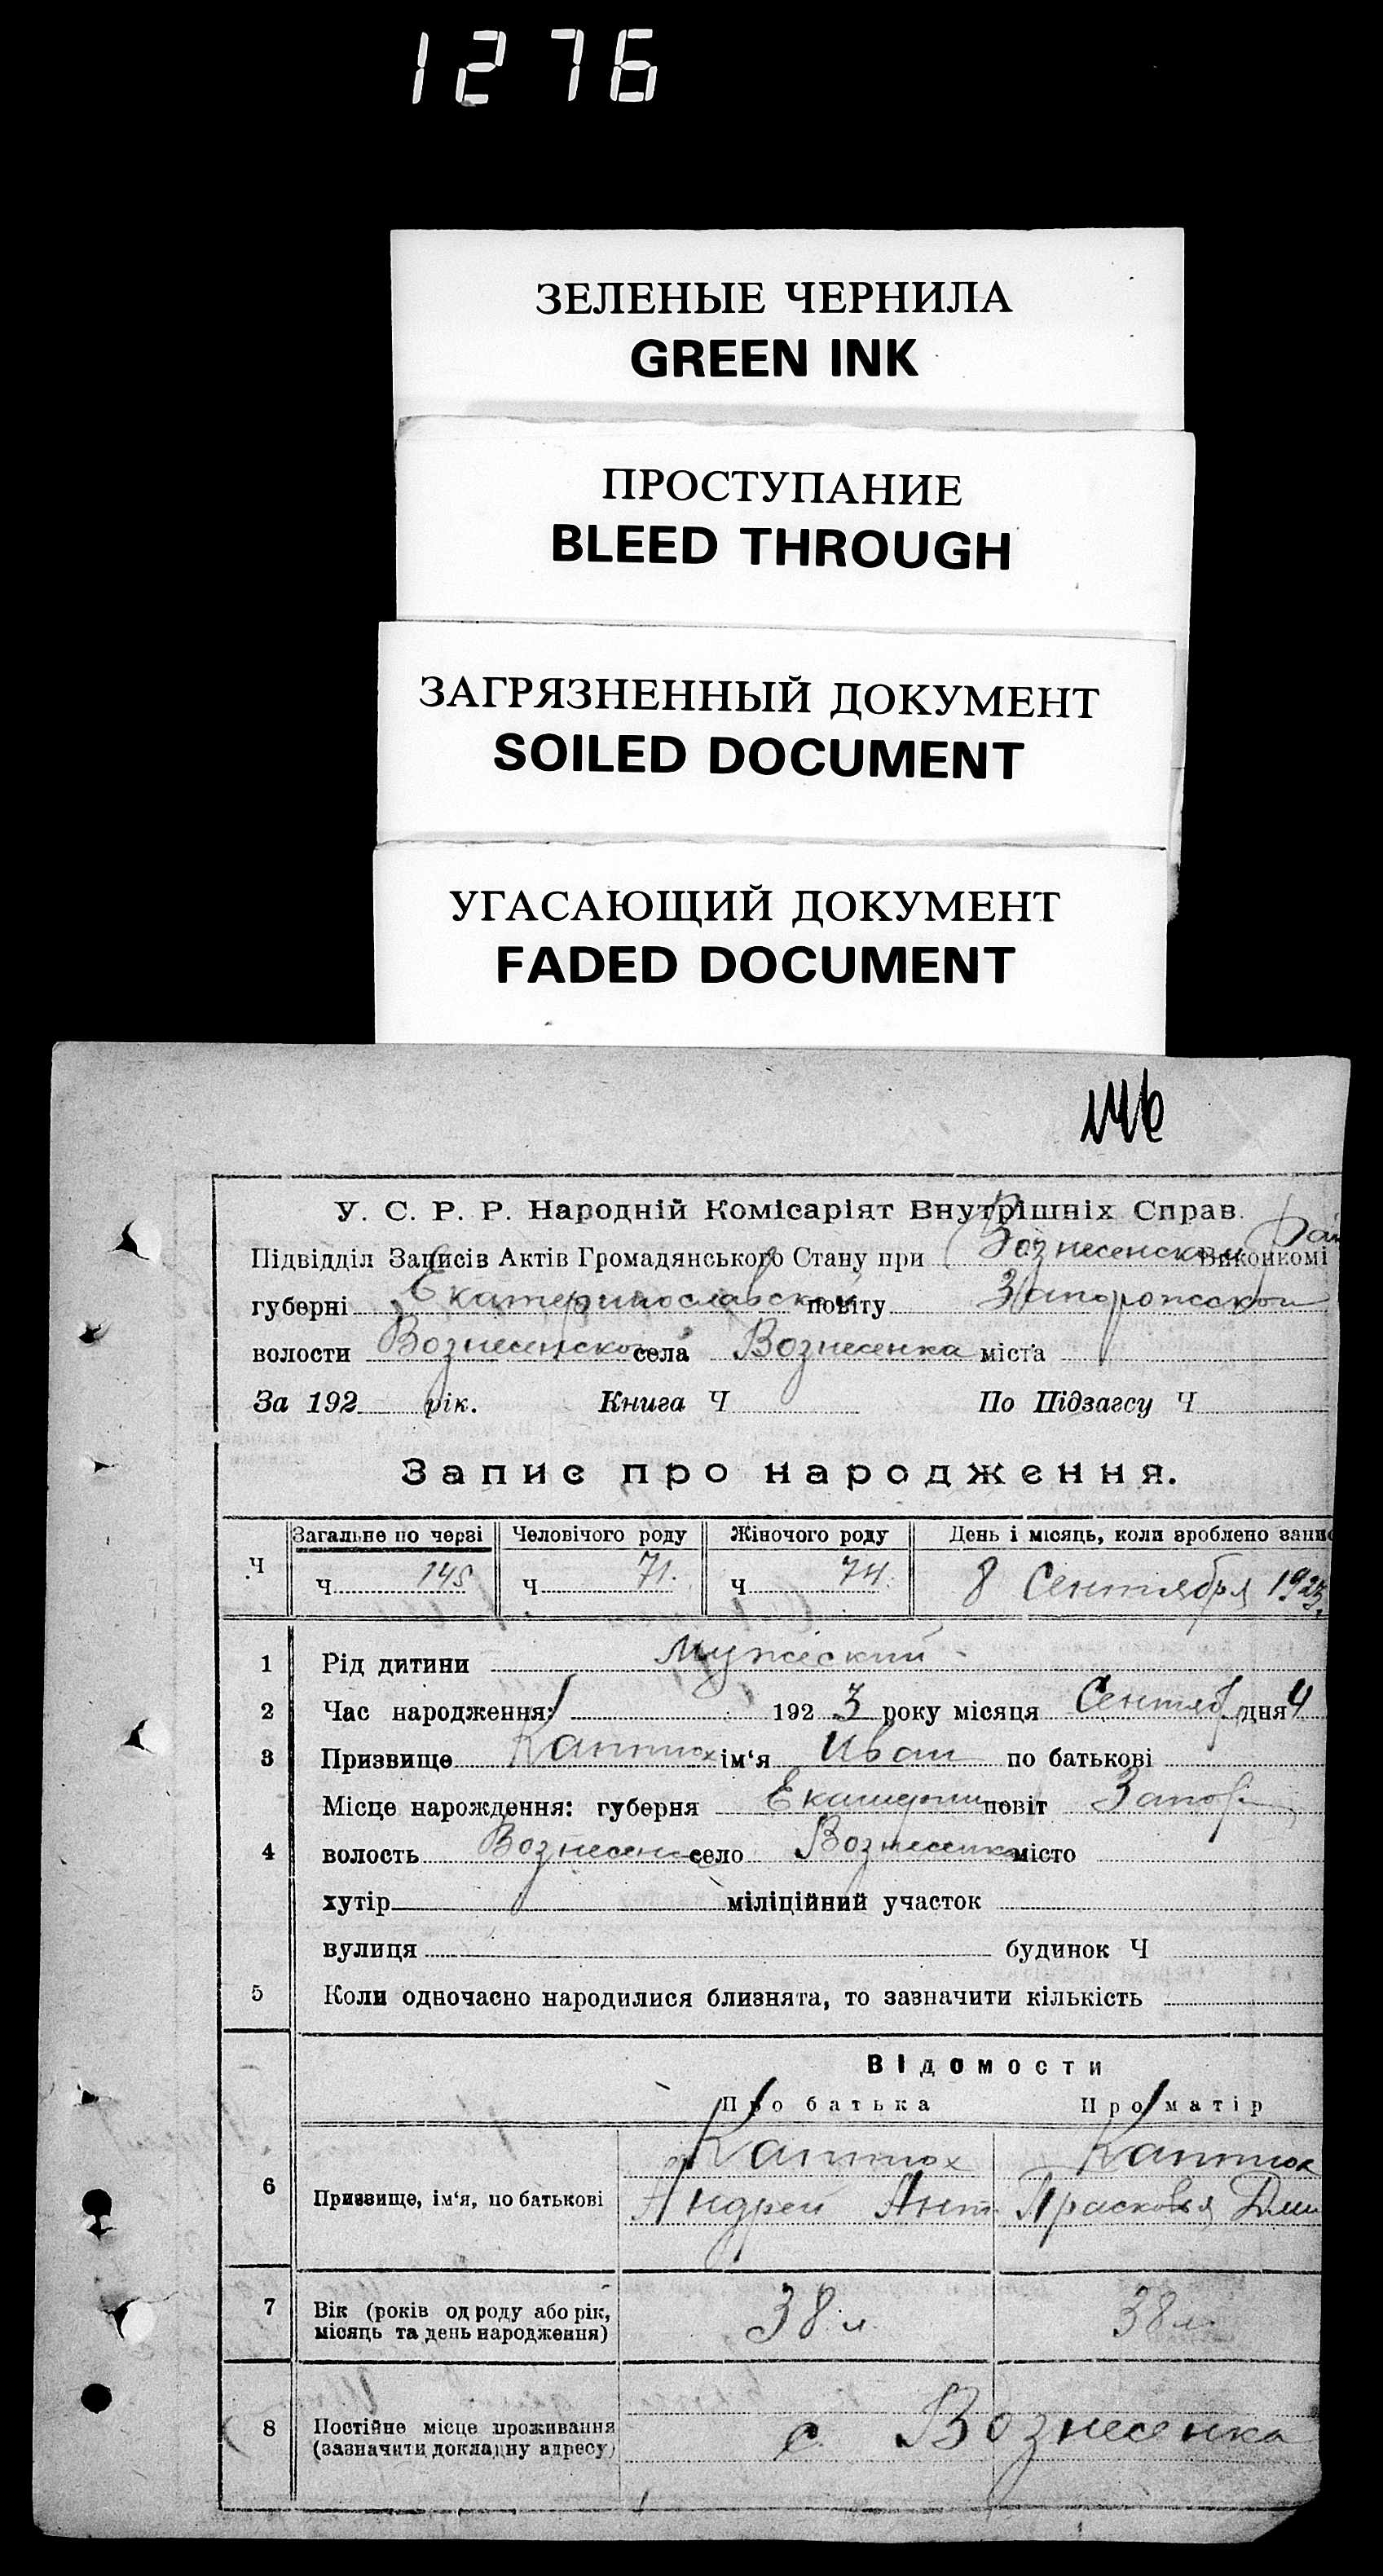 1276
ЗЕЛЕНЫЕ ЧЕРНИЛА
GREEN INK
ПРОСТУПАНИЕ
BLEED THROUGH
ЗАГРЯЗНЕННЫЙ ДОКУМЕНТ
SOILED DOCUMENT
УГАСАЮЩИЙ ДОКУМЕНТ
FADED DOCUMENT
146
У. С. Р. Р. Народній Комісаріят Внутрішніх Справ.
Підвідділ Записів Актів Громадянського Стану при Вознесенском Рай Виконкомі
губерні Екатеринославской повіту Запорожской
волости Вознесенской села Вознесенка міста
За 192 рік. Книга Ч По Підзагсу Ч
Запис про народження.
Ч Загальне по черзі Человічого роду Жіночого роду День і місяць, коли зроблено запис
Ч 145 Ч 71. Ч 74. 8 Сентября 1923.
1 Рід дитини Мужеский
2 Час народження: 192 3 року місяця Сентяб дня 4
3 Призвище ім‘я Иван по батькові
Місце нарождення: губерня Екатерин повіт Запор.
4 волость Вознесен село Вознесенка місто
хутір міліційний участок
вулиця будинок Ч
5 Коли одночасно народилися близнята, то зазначити кількість
Відомости
Про батька Про матір
6 Призвище, ім‘я, по батькові Андрей Ант Прасковья Дми
7 Вік (років од роду або рік, місяць та день народження) 38 л. 38 л.
8 Постійне місце проживання (зазначити докладну адресу) с. Вознесенка